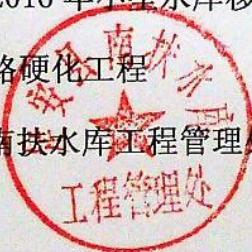 2016 年小型水库移
路硬化工程
南扶水库工程管理处
定安县南扶水库
工程管理处